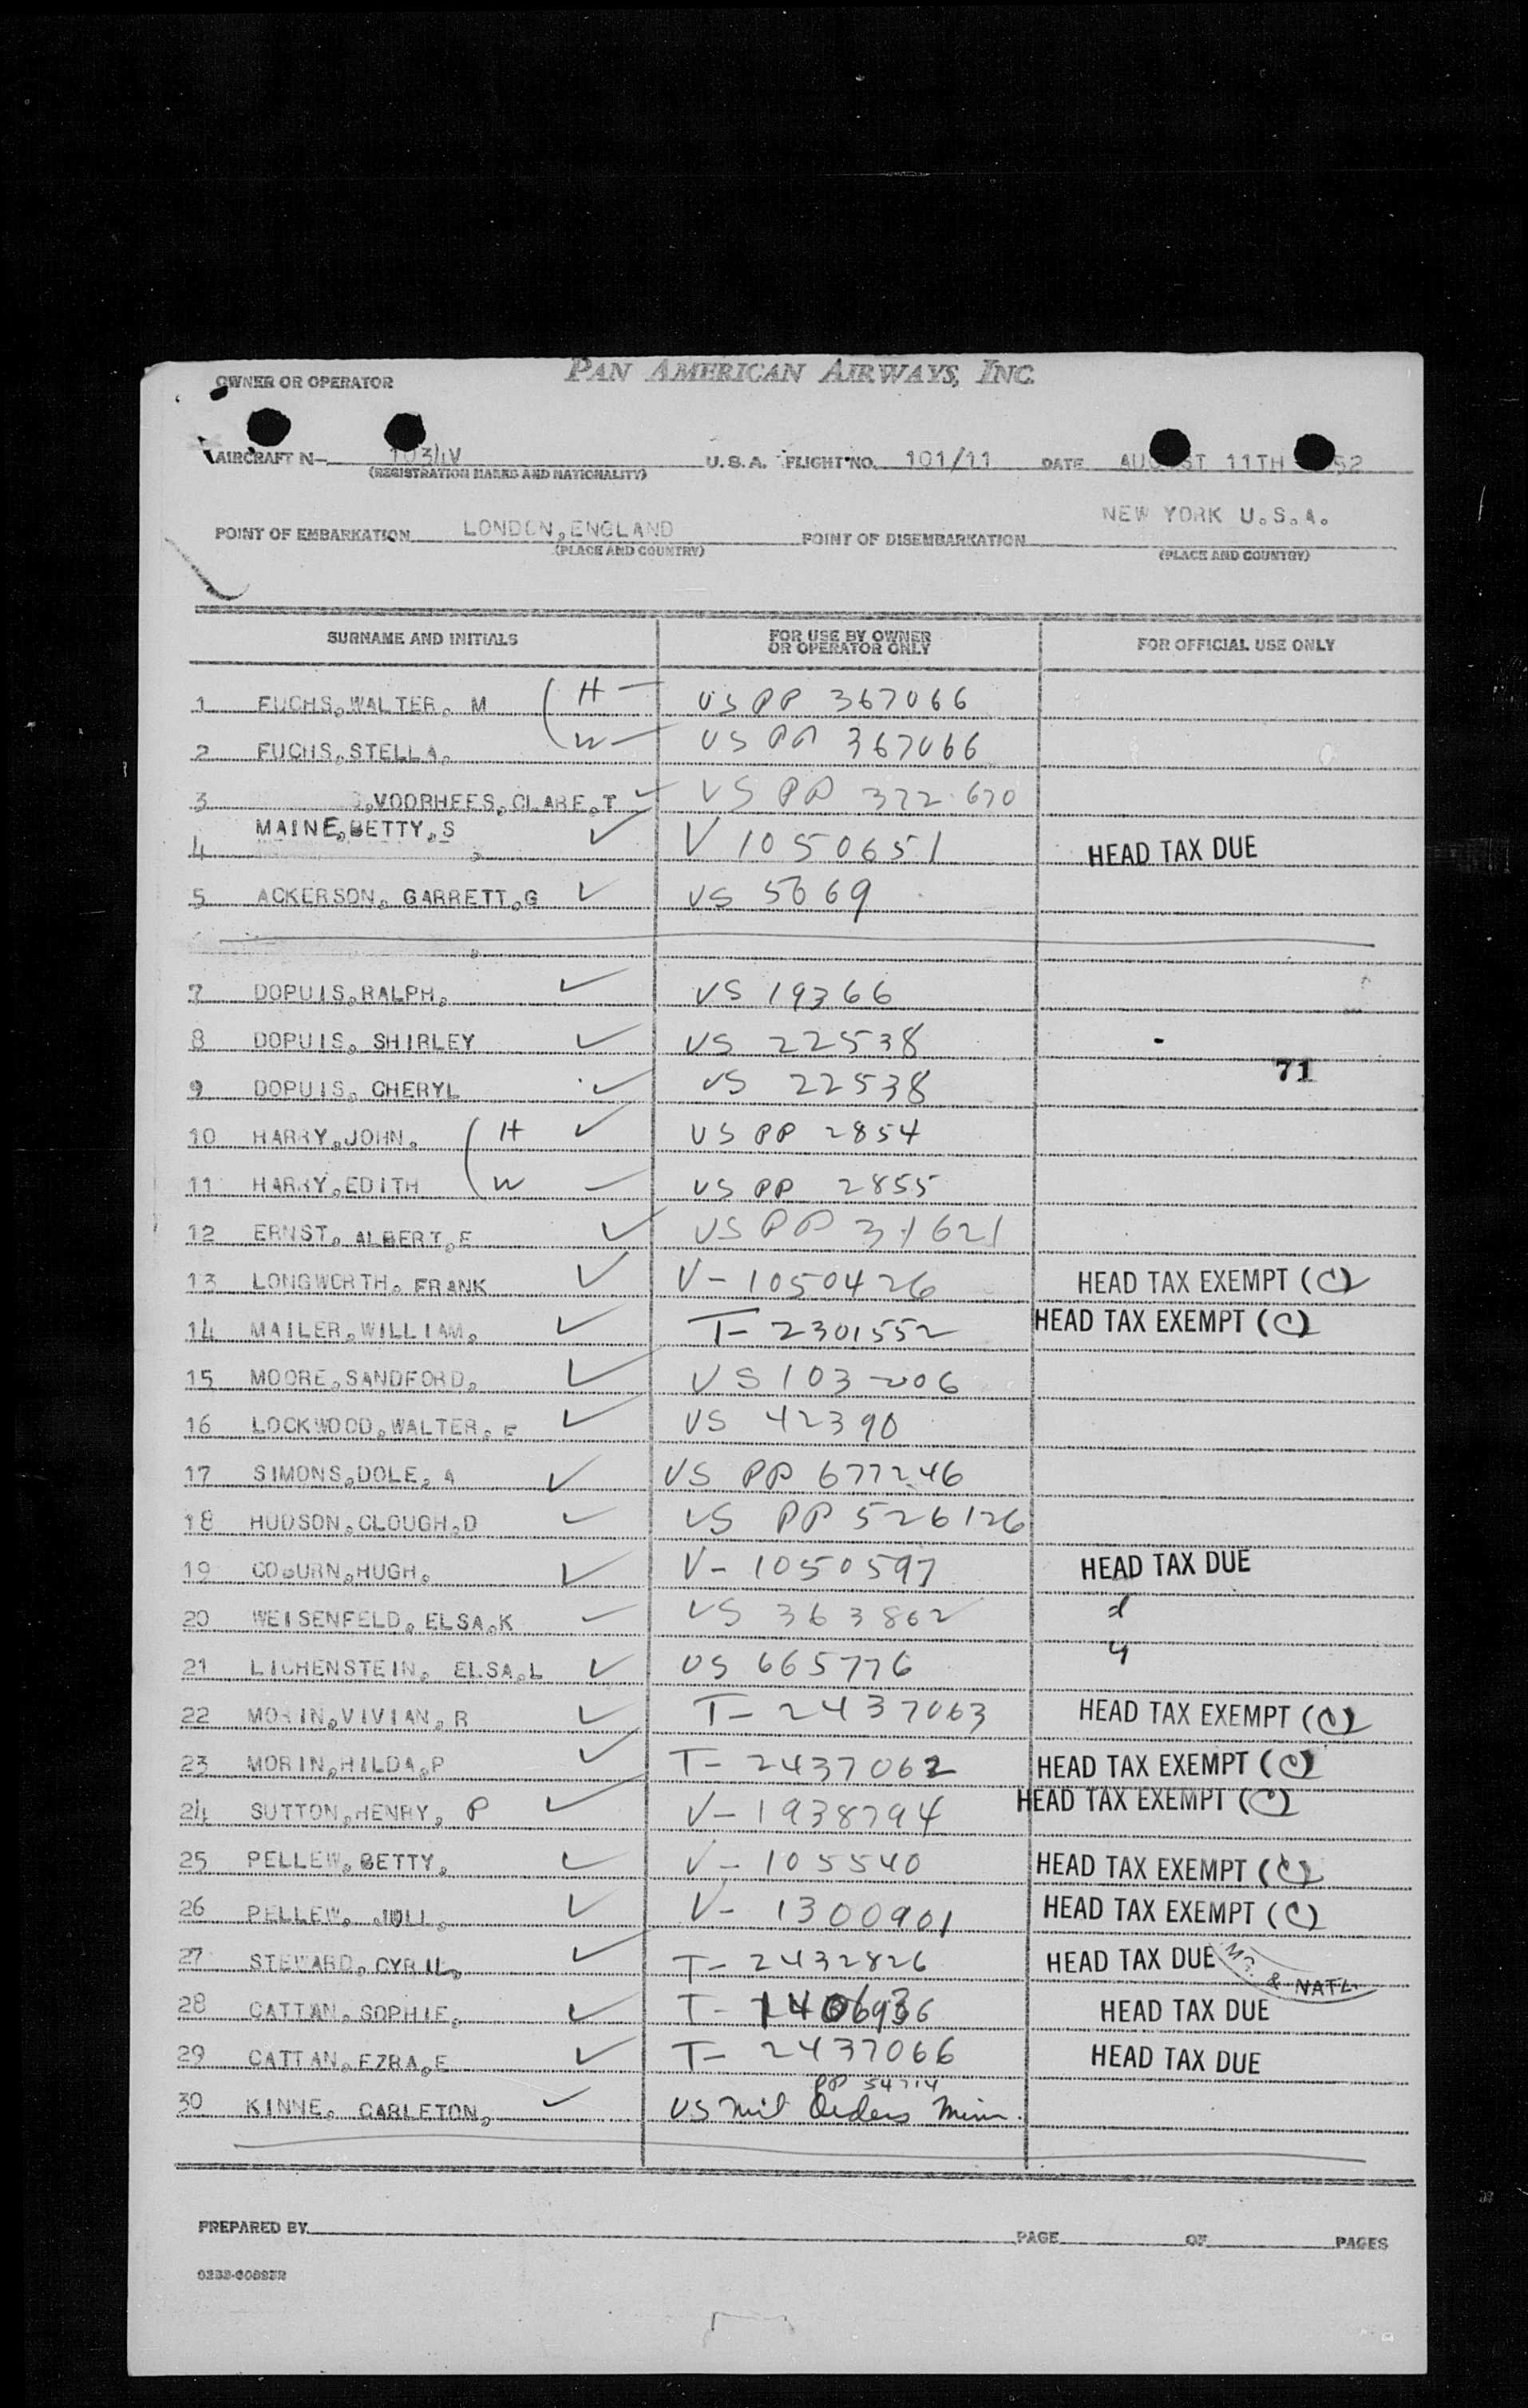 PAN AMERICAN AIRWAYS, INC.
OWNER OR OPERATOR
AIRCRAFT N- 1034V U.S.A. FLIGHT NO. 101/11 DATE AUGUST 11TH 52
(REGISTRATION MARKS AND NATIONALITY)
NEW YORK U.S.A.
POINT OF EMBARKATION LONDON, ENGLAND POINT OF DISEMBARKATION
(PLACE AND COUNTRY) (PLACE AND COUNTRY)
SURNAME AND INITIALS FOR USE BY OWNER OR OPERATOR ONLY FOR OFFICIAL USE ONLY
1 FUCHS, WALTER. M (H — US PP 367066
2 FUCHS, STELLA. (W — US PP 367066
3 VOORHEES, CLARE, T ✓ US PP 372670
4 MAINE, BETTY, S ✓ V 1050651 HEAD TAX DUE
5 ACKERSON, GARRETT, G ✓ US 5669
7 DOPUIS, RALPH. ✓ US 19366
8 DOPUIS, SHIRLEY ✓ US 22538
71
9 DOPUIS, CHERYL ✓ US 22538
10 HARRY, JOHN. (H ✓ US PP 2854
11 HARRY, EDITH (W — US PP 2855
12 ERNST, ALBERT, E ✓ US PP 31621
13 LONGWORTH, FRANK ✓ V-1050426 HEAD TAX EXEMPT (C)
14 MAILER, WILLIAM. ✓ T-2301552 HEAD TAX EXEMPT (C)
15 MOORE, SANDFORD. ✓ US 103206
16 LOCKWOOD, WALTER. E ✓ US 42390
17 SIMONS, DOLE, A ✓ US PP 677246
18 HUDSON, CLOUGH, D ✓ US PP 526126
19 COBURN, HUGH. ✓ V-1050597 HEAD TAX DUE
20 WEISENFELD, ELSA, K — US 363862
21 LICHENSTEIN, ELSA, L ✓ US 665776
22 MORIN, VIVIAN, R ✓ T-2437063 HEAD TAX EXEMPT (C)
23 MORIN, HILDA, P ✓ T-2437062 HEAD TAX EXEMPT (C)
24 SUTTON, HENRY, P ✓ V-1938794 HEAD TAX EXEMPT (C)
25 PELLEW, BETTY. ✓ V-105540 HEAD TAX EXEMPT (C)
26 PELLEW, JULI. ✓ V-1300901 HEAD TAX EXEMPT (C)
27 STEWARD, CYRIL. ✓ T-2432826 HEAD TAX DUE
& NATZ.
28 CATTAN, SOPHIE. ✓ T-1406936 HEAD TAX DUE
29 CATTAN, EZRA, E ✓ T-2437066 HEAD TAX DUE
PP 54714
30 KINNE, CARLETON, ✓ US Mil Orders
PREPARED BY PAGE OF PAGES